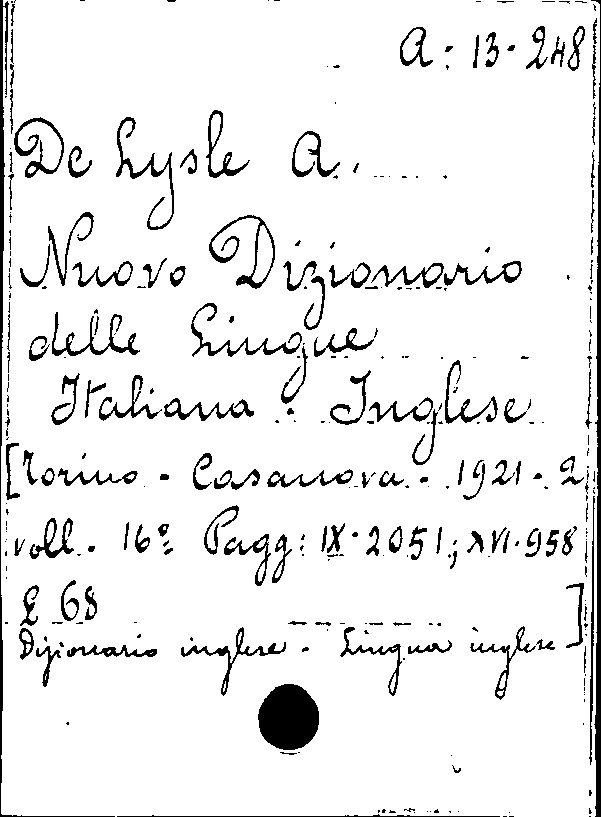 A. 13. 248
De Lysle A.
Nuovo Dizionario
delle Lingue
Italiana - Inglese
[Torino - Casanova - 1921 - 2
voll. 16° Pagg: IX-2051; XVI-958
£ 68 ]
Dizionario inglese - Lingua inglese